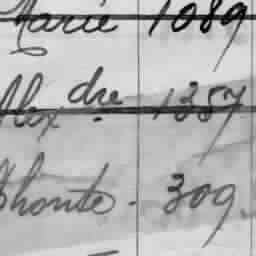 Marie 1089
Alexdre 1387
Phonte - 309.